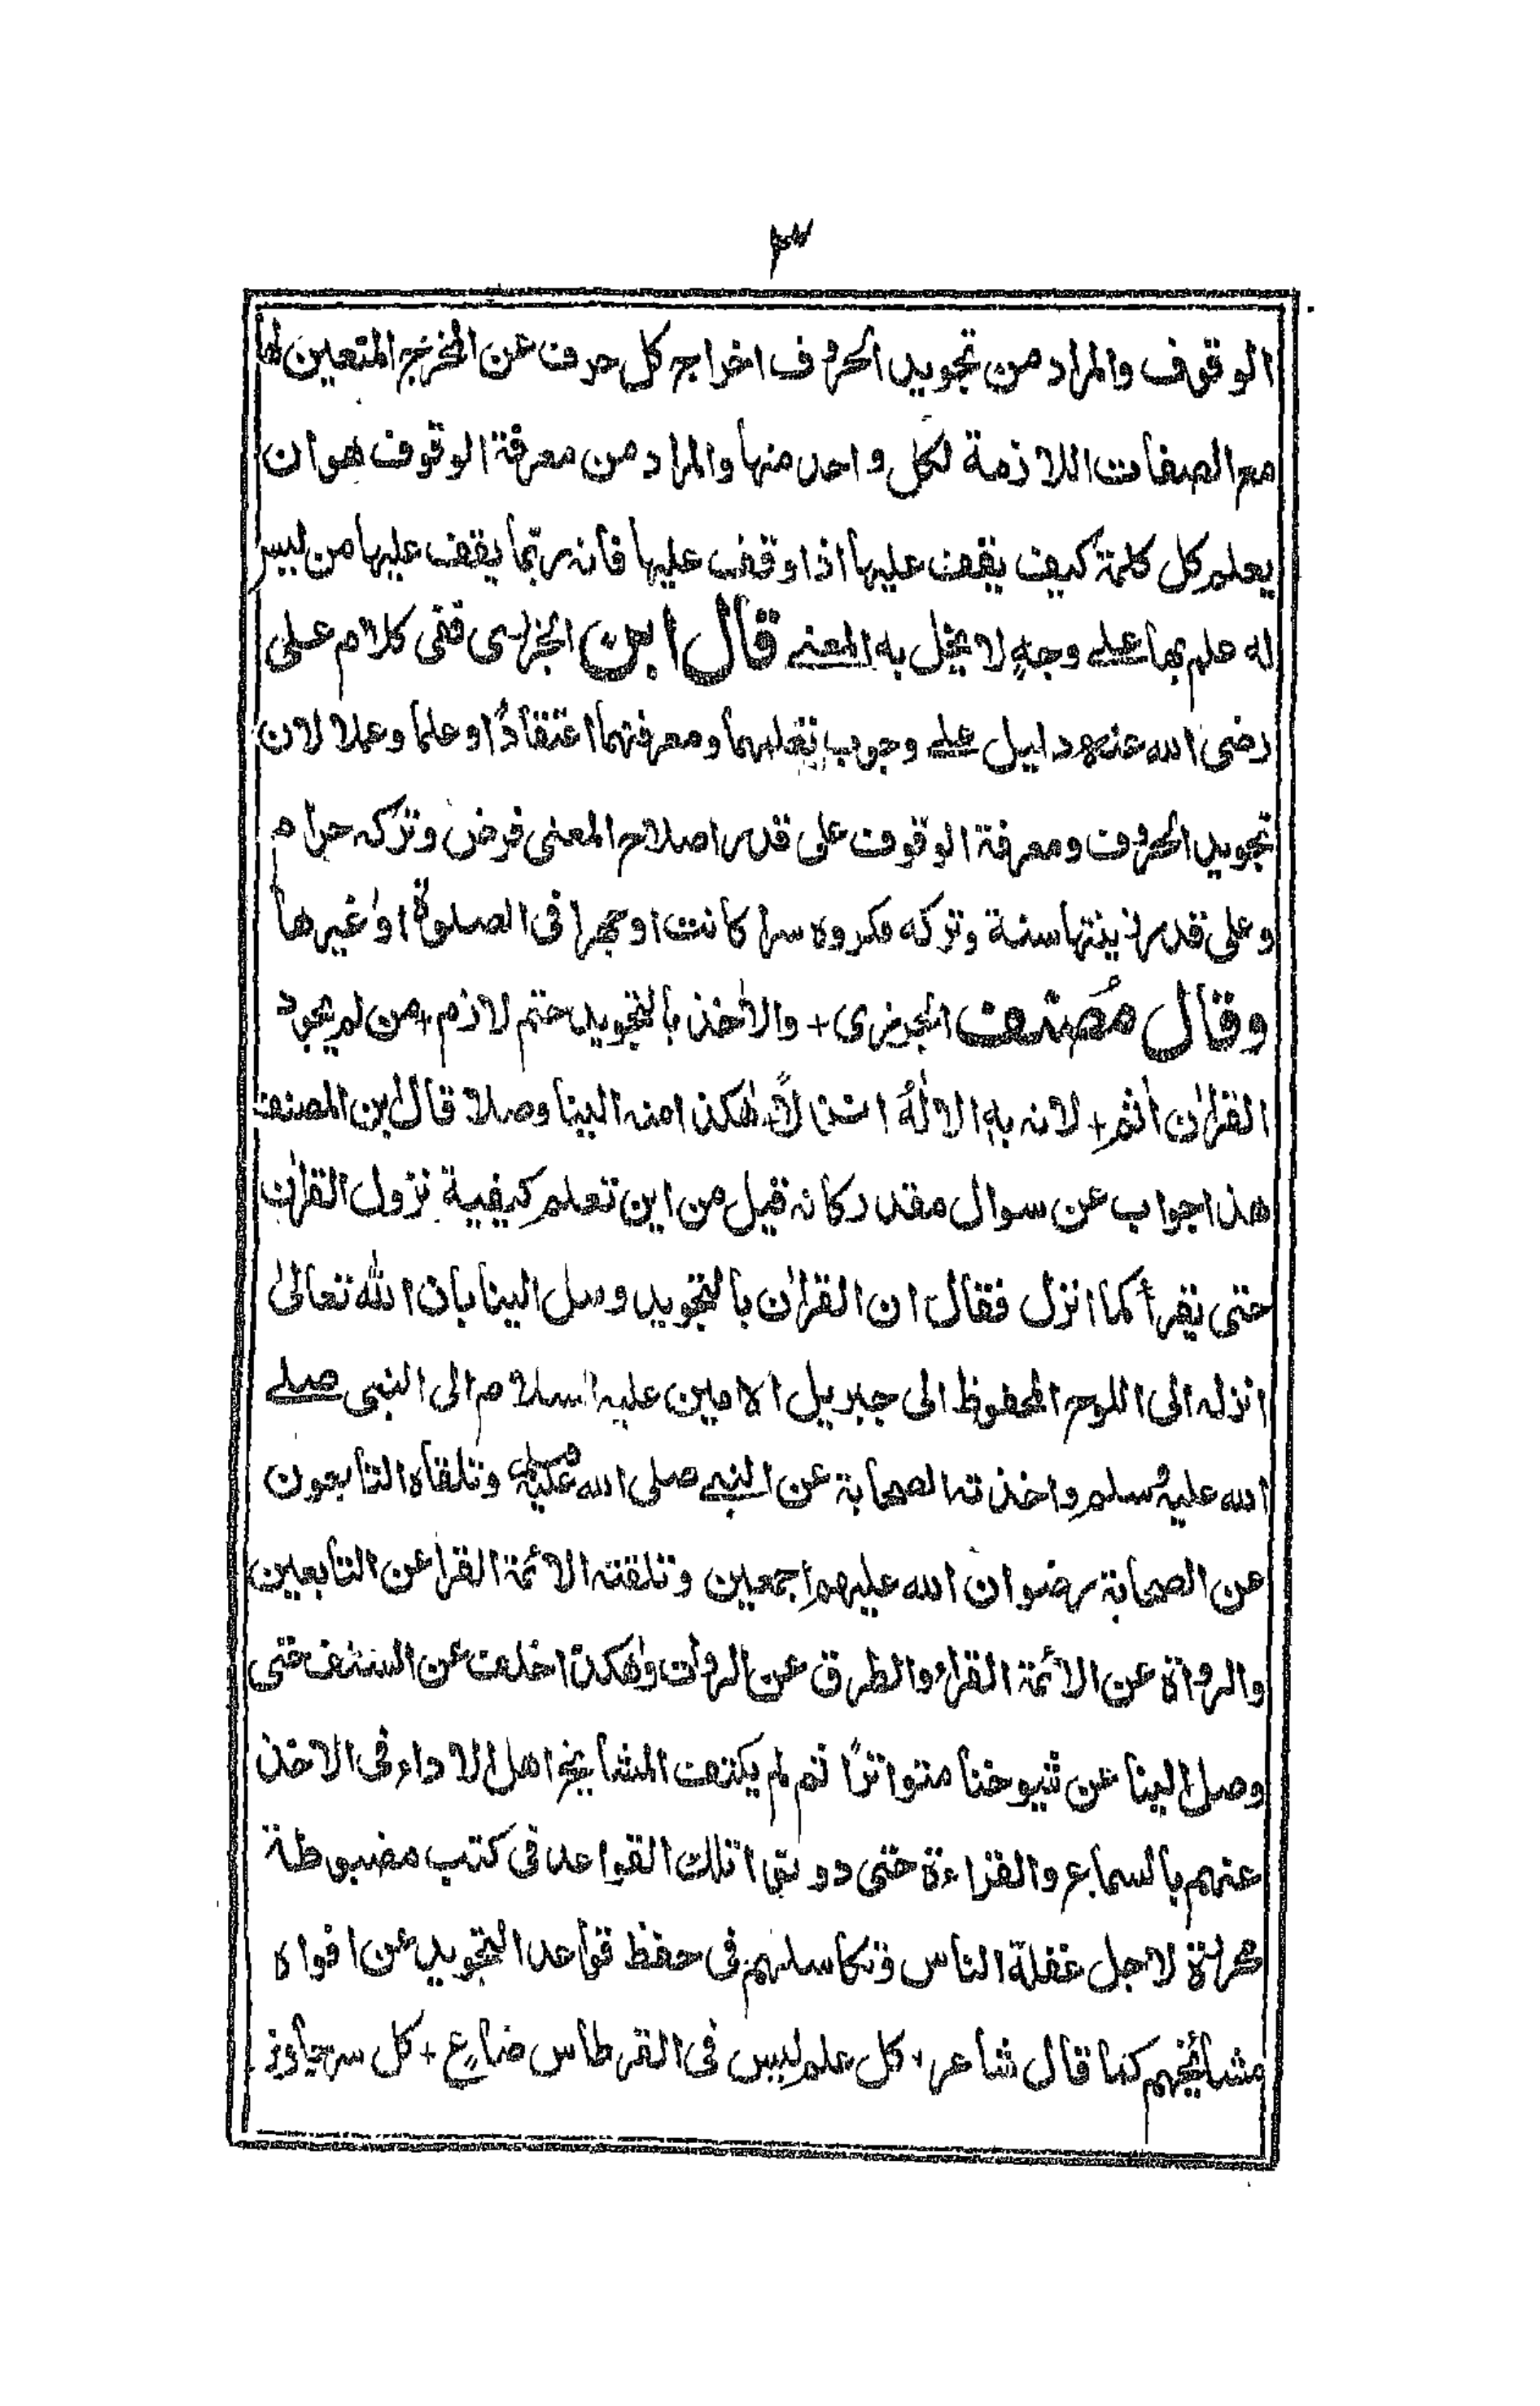 ٣
الوقوف والمراد من تجويد الحروف اخراج كل حرف عن المخرج المتعين لها
مع الصفات اللازمة لكل واحد منها والمراد من معرفة الوقوف هو ان
يعلم كل كلمة كيف يقف عليها اذا وقف عليها فانه ربما يقف عليها من ليس
له علم بها على وجهٍ لا يخل به المعنے قال ابن الجزرى ففى كلام على
رضى الله عنه دليل علے وجوب تعلمهما ومعرفتهما اعتقادًا وعلما وعملا لان
تجويد الحروف ومعرفة الوقوف على قدر اصلاح المعنى فرض وتركه حرام
وعلى قدر زينتها سنة وتركه مكروه سرا كانت او جهرا فى الصلوة او غيرها
وقال مُصنف الجزرى + والاخذ بالتجويد حتم لازم + من لم يجود
القران اٰثم + لانه به الالٰهُ انزلاً + هٰكذا منه الينا وصلا قال ابن المصنف
هذا جواب عن سوال مقدر كانه قيل من اين تعلم كيفية نزول القران
حتى يقرأ كما انزل فقال ان القران بالتجويد وصل الينا بان الله تعالىٰ
انزله الى اللوح المحفوظ الى جبريل الامين عليه السلام الى النبى صلے
الله عليه وسلم واخذته الصحابة عن النبے صلى الله عليه وسلم وتلقاه التابعون
عن الصحابة رضوان الله عليهم اجمعين وتلقته الائمة القرا عن التابعين
والرواة عن الائمة القراء والطرق عن الروات وهٰكذا خلف عن السلف حتى
وصل الينا عن شيوخنا متواترًا ثم لم يكتف المشايخ اهل الاداء فى الاخذ
عنهم بالسماع والقراءة حتى دونوا تلك القواعد فى كتب مضبوطة
محررة لاجل غفلة الناس وتكاسلهم فى حفظ قواعد التجويد عن افواه
مشائخهم كما قال شاعر + كل علم ليس فى القرطاس ضاع + كل سر جاوز